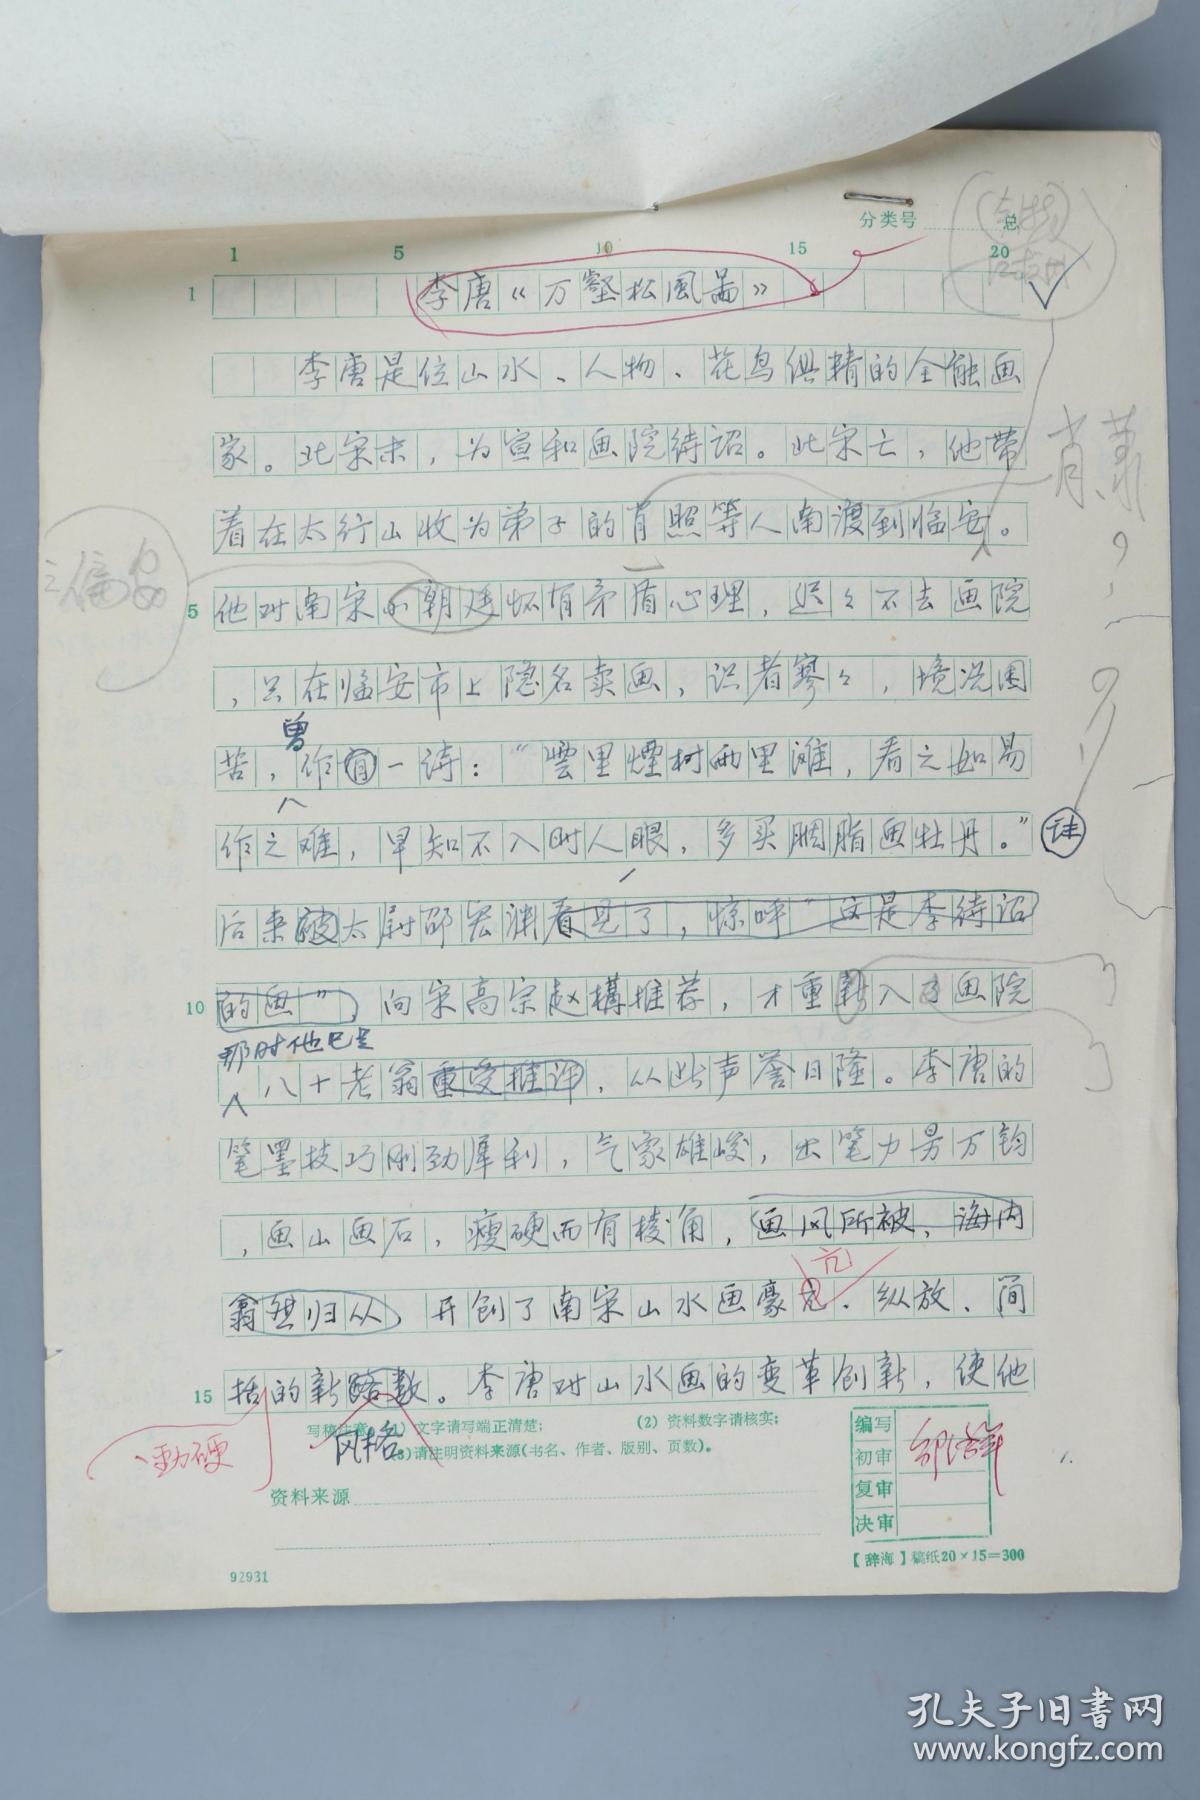 分类号 总
1 5 10 15 20
1 李唐《万壑松風畵》
李唐是位山水、人物、花鸟俱精的全能画
家。北宋末，为宣和画院待诏。北宋亡，他带
着在太行山收为弟子的肖照等人南渡到临安。
肖 萧？
偏安
5 他对南宋小朝廷怀有矛盾心理，迟々不去画院
，只在临安市上隐名卖画，识者寥々，境况困
曾
苦，作有一诗：“雲里煙树雨里滩，看之如易
作之难，早知不入时人眼，多买胭脂画牡丹。”
註
后来被太尉邵宏渊看見了，惊呼“这是李待诏
10 的画”，向宋高宗赵構推荐，才重新入了画院
那时他已是
八十老翁重受推许，从此声誉日隆。李唐的
笔墨技巧刚劲犀利，气象雄峻，出笔力易万钧
，画山画石，瘦硬而有棱角，画风所被，海内
亢
翕然归从，开创了南宋山水画豪亢、纵放、简
15 括的新路数。李唐对山水画的变革创新，使他
、勁硬
风格
写稿注意：(1) 文字请写端正清楚； (2) 资料数字请核实；
(3)请注明资料来源(书名、作者、版别、页数)。
资料来源
编写
初审
复审
决审
【辞海】稿纸20×15=300
92931
孔夫子旧书网
www.kongfz.com